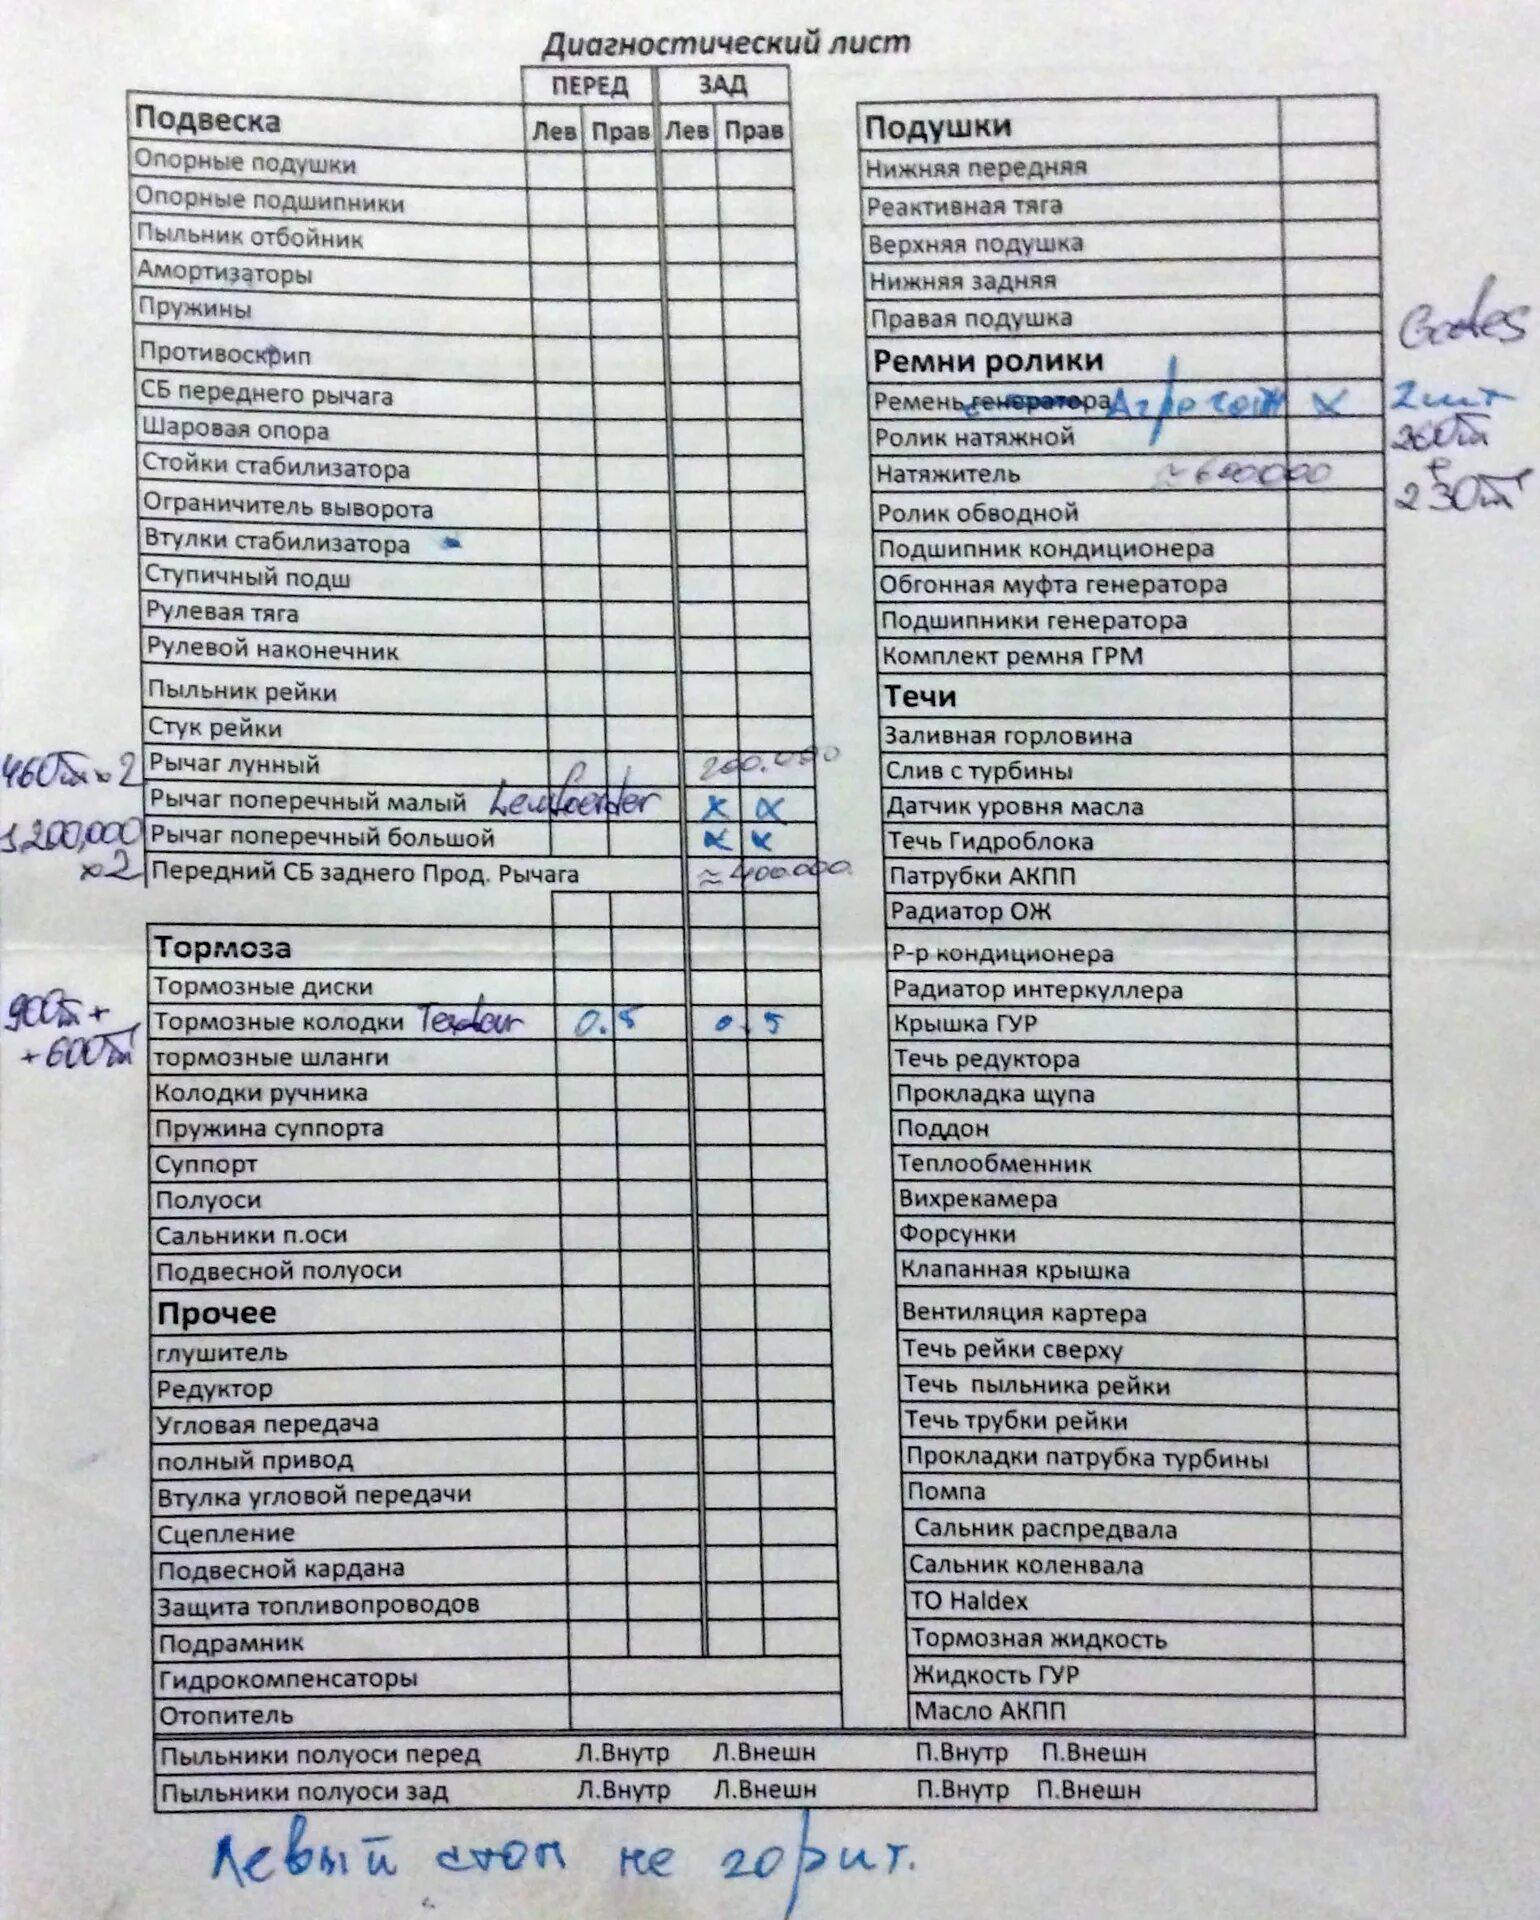 Диагностический лист
ПЕРЕД ЗАД
Подвеска Лев Прав Лев Прав
Опорные подушки
Опорные подшипники
Пыльник отбойник
Амортизаторы
Пружины
Противоскрип
СБ переднего рычага
Шаровая опора
Стойки стабилизатора
Ограничитель выворота
Втулки стабилизатора
Ступичный подш
Рулевая тяга
Рулевой наконечник
Пыльник рейки
Стук рейки
460т х 2 Рычаг лунный 200.000
Рычаг поперечный малый Lemfoerder х х
1,200,000 Рычаг поперечный большой х х
х2 Передний СБ заднего Прод. Рычага ≈ 400.000.
Тормоза
Тормозные диски
900т + Тормозные колодки Textar 0.5 0.5
+ 600т тормозные шланги
Колодки ручника
Пружина суппорта
Суппорт
Полуоси
Сальники п.оси
Подвесной полуоси
Прочее
глушитель
Редуктор
Угловая передача
полный привод
Втулка угловой передачи
Сцепление
Подвесной кардана
Защита топливопроводов
Подрамник
Гидрокомпенсаторы
Отопитель
Подушки
Нижняя передняя
Реактивная тяга
Верхняя подушка
Нижняя задняя
Правая подушка
Gates
Ремни ролики
Ремень генератора Агрегат х 2шт
Ролик натяжной 260т
Натяжитель ≈ 600.000 230т
Ролик обводной
Подшипник кондиционера
Обгонная муфта генератора
Подшипники генератора
Комплект ремня ГРМ
Течи
Заливная горловина
Слив с турбины
Датчик уровня масла
Течь Гидроблока
Патрубки АКПП
Радиатор ОЖ
Р-р кондиционера
Радиатор интеркуллера
Крышка ГУР
Течь редуктора
Прокладка щупа
Поддон
Теплообменник
Вихрекамера
Форсунки
Клапанная крышка
Вентиляция картера
Течь рейки сверху
Течь пыльника рейки
Течь трубки рейки
Прокладки патрубка турбины
Помпа
Сальник распредвала
Сальник коленвала
ТО Haldex
Тормозная жидкость
Жидкость ГУР
Масло АКПП
Пыльники полуоси перед Л.Внутр Л.Внешн П.Внутр П.Внешн
Пыльники полуоси зад Л.Внутр Л.Внешн П.Внутр П.Внешн
Левый стоп не горит.